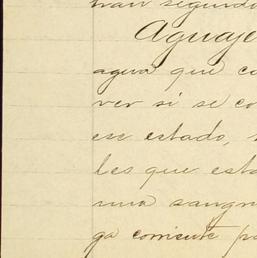 han segundo
Aguaje
agua que co
ver si se co
ese estado,
les que esta
una sangr
ga corriente pa